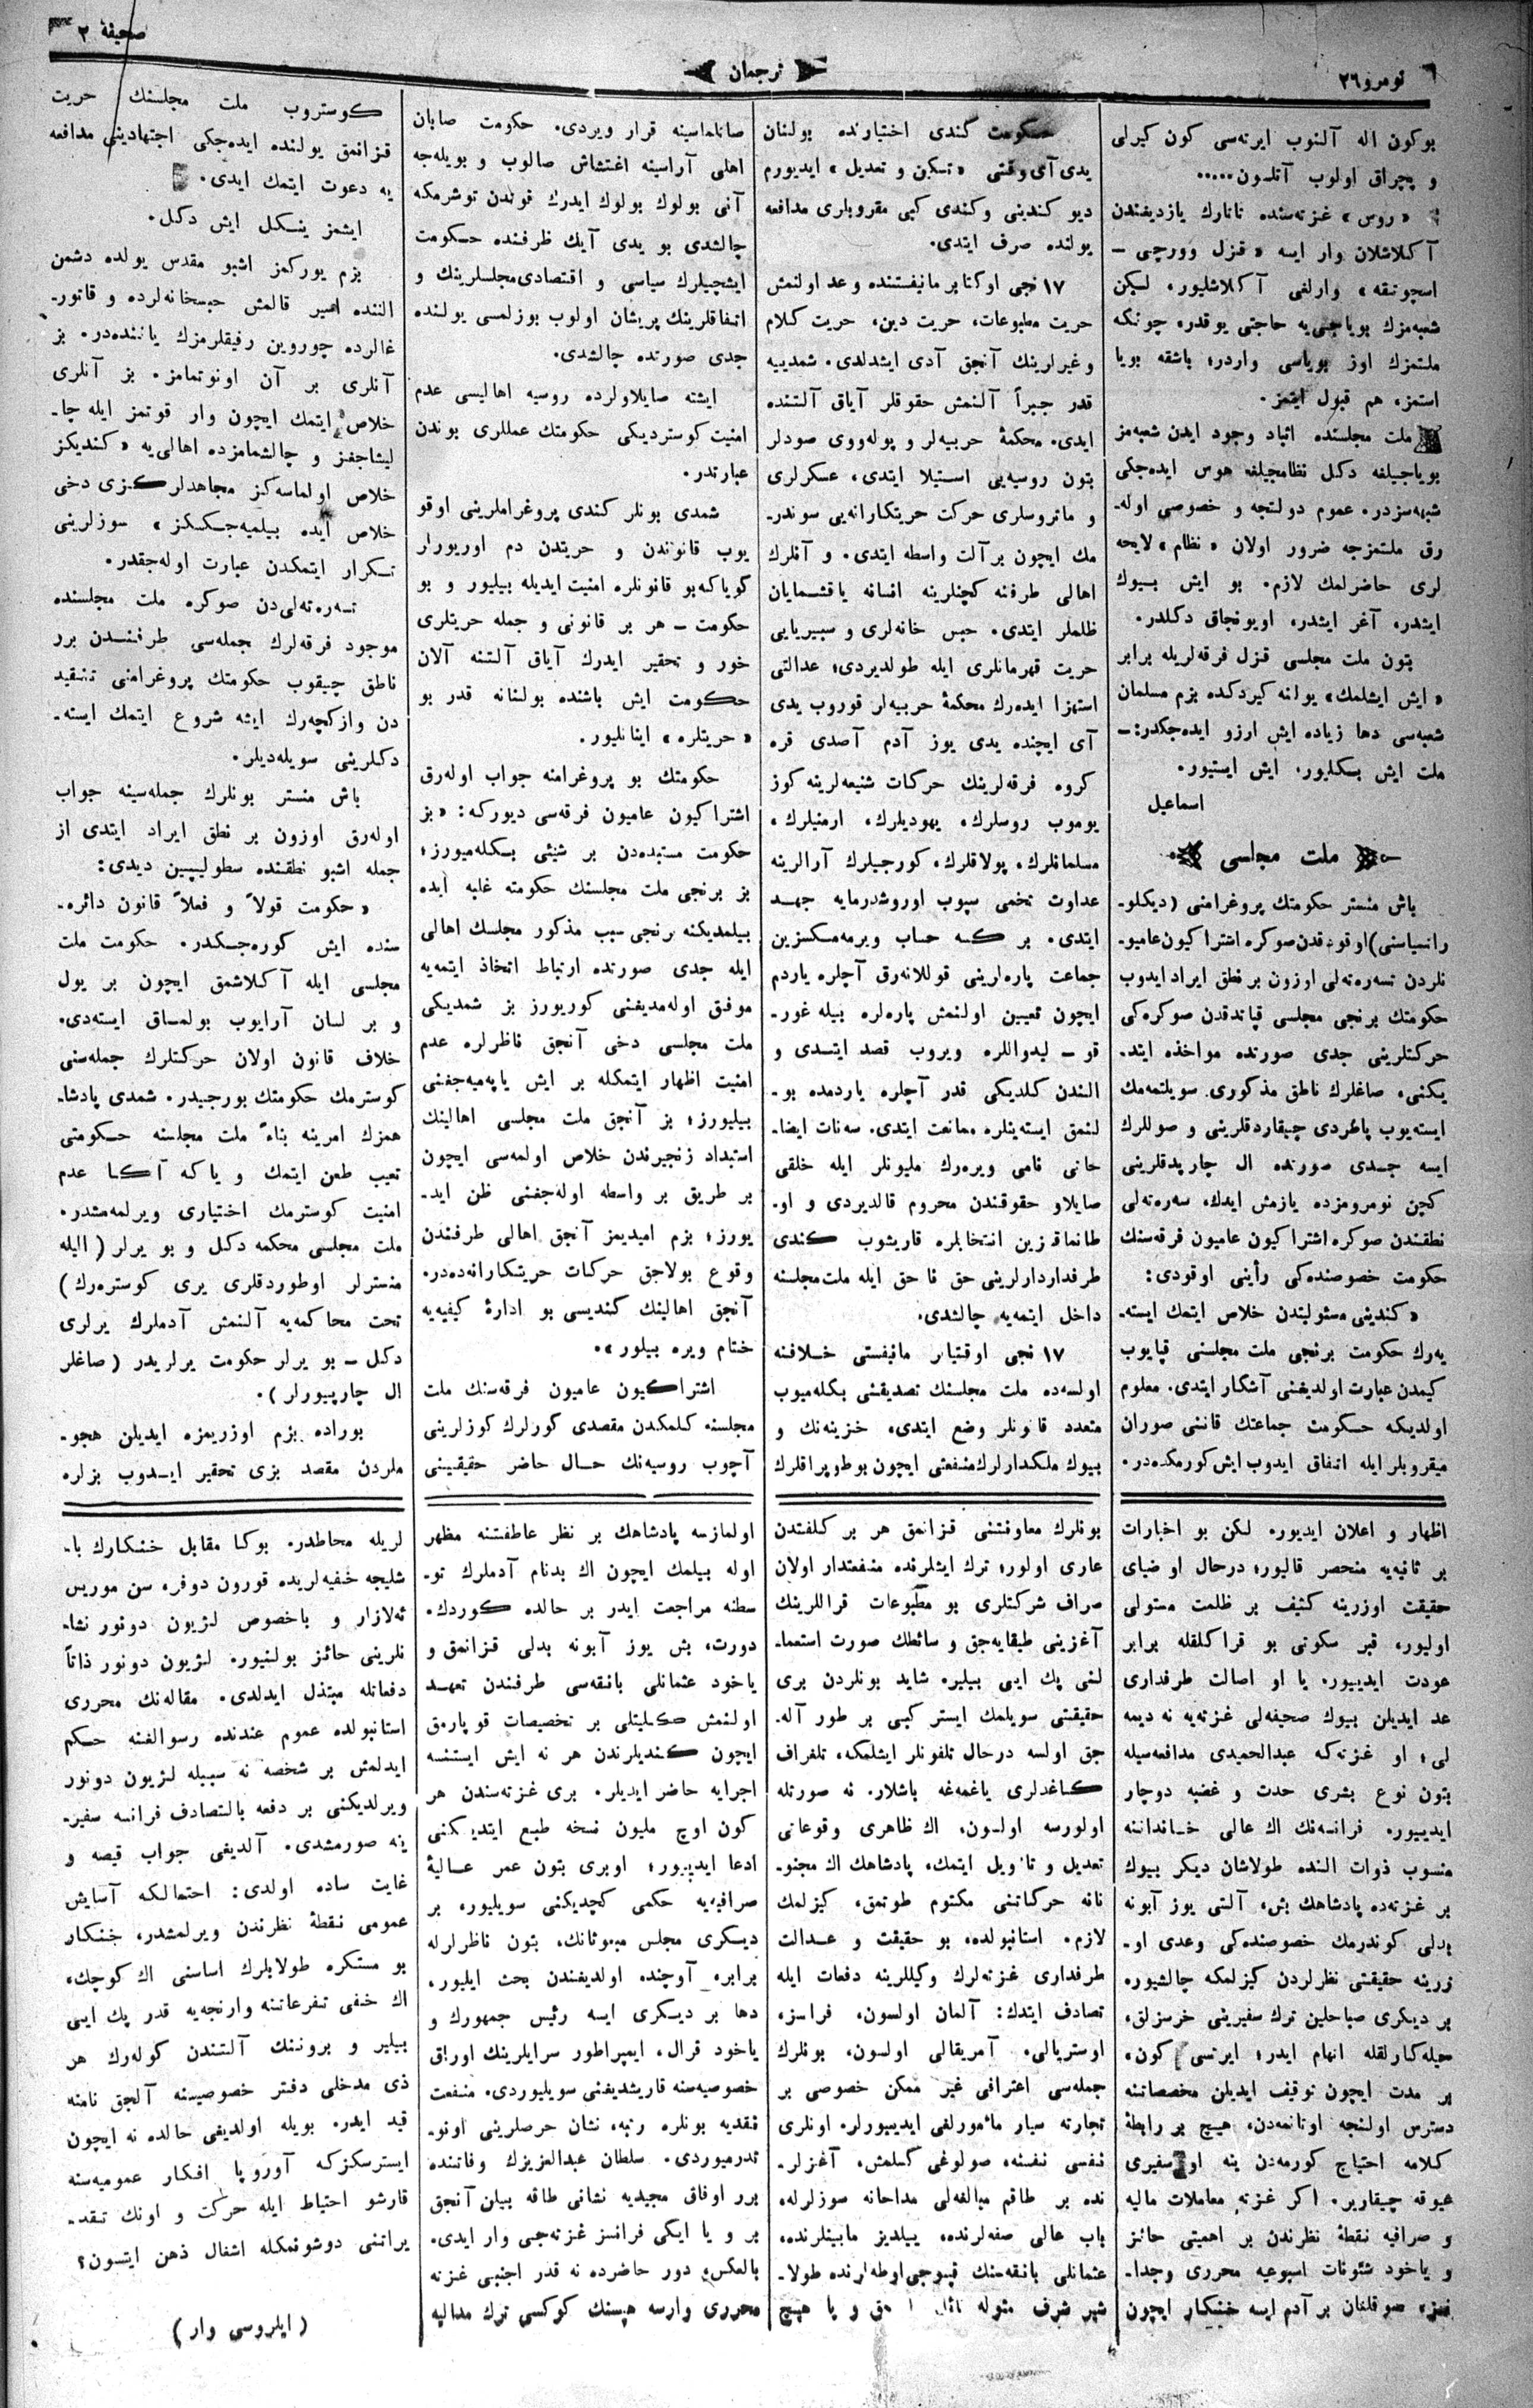 نومرو ٢٦
ترجمان
صحیفهٔ ٢
بوكون اله آلنوب ایرته‌سی كون كیرلی
و پچراق اولوب آتلسون.....
« روس » غزته‌سنده تاتارك یازدیغندن
آكلاشلان وار ایسه « قزل وورچی ــ
اسچوتقه » وارلغی آكلاشلیور، لیكن
شعبه‌مزك بویاجی‌یه حاجتی یوقدر، چونكه
ملتمزك اوز بویاسی واردر؛ باشقه بویا
استمز، هم قبول ایتمز.
ملت مجلسنده اثباد وجود ایدن شعبه‌مز
بویاجیلغه دكل نظامجیلغه هوس ایده‌جكی
شبهه‌سزدر. عموم دولتجه و خصوصی اوله‌ـ
رق ملتمزجه ضرور اولان « نظام » لایحه
لری حاضرلمك لازم. بو ایش بیوك
ایشدر، آغر ایشدر، اویونجاق دكلدر.
بتون ملت مجلسی قزل فرقه‌لریله برابر
« ایش ایشلمك » یولنه كیردكده بزم مسلمان
شعبه‌سی دها زیاده ایش ارزو ایده‌جكدر:ــ
ملت ایش بكلیور. ایش ایستیور.
اسماعیل
ملت مجلسی
باش منستر حكومتك پروغرامنی (دیكلو‌ـ
راتسیاسنی) اوقوندقدن صوكره اشتراكیون عامیو‌ـ
نلردن تسه‌ره‌ته‌لی اوزون بر نطق ایراد ایدوب
حكومتك برنجی مجلسی قپاندقدن صوكره‌كی
حركتلرینی جدی صورتده مواخذه ایتد‌ـ
یكنی، صاغلرك ناطق مذكوری سویلتمه‌مك
ایسته‌یوب پاطردی چیقاردقلرینی و صوللرك
ایسه جدی صورتده ال چارپدقلرینی
كچن نومرومزده یازمش ایدك. سه‌ره‌ته‌لی
نطقندن صوكره اشتراكیون عامیون فرقه‌سنك
حكومت خصوصنده‌كی رأینی اوقودی:
« كندینی مسئولیتدن خلاص ایتمك ایسته‌ـ
یه‌رك حكومت برنجی ملت مجلسنی قپایوب
كیمدن عبارت اولدیغنی آشكار ایتدی. معلوم
اولدیكه حكومت جماعتك قاننی صوران
میقروبلر ایله اتفاق ایدوب ایش كورمكده‌در.
حكومت كندی اختیارنده بولنان
یدی آی وقتی « تسكین و تعدیل » ایدیورم
دیو كندینی و كندی كبی مقروباری مدافعه
یولنده صرف ایتدی.
١٧ نجی اوكتابر مانیفستنده وعد اولنمش
حریت مطبوعات، حریت دین، حریت كلام
وغیرلرینك آنجق آدی ایشدلدی. شمدییه
قدر جبراً آلنمش حقوقلر آیاق آلتنده
ایدی. محكمهٔ حربیه‌لر و پوله‌ووی صودلر
بتون روسیه‌یی استیلا ایتدی، عسكرلری
و ماتروسلری حركت حریتكارانه‌یی سوندر‌ـ
مك ایچون بر آلت واسطه ایتدی. و آنلرك
اهالی طرفنه كچنلرینه انسانه یاقشمایان
ظلملر ایتدی. حبس خانه‌لری و سیبیریایی
حریت قهرمانلری ایله طولدیردی؛ عدالتی
استهزا ایده‌رك محكمهٔ حربیه‌لر قوروب یدی
آی ایچنده یدی یوز آدم آصدی قره
كروه فرقه‌لرینك حركات شنیعه‌لرینه كوز
یوموب روسلرك، یهودیلرك، ارمنیلرك،
مسلمانلرك، پولاقلرك، كورجیلرك آرالرینه
عداوت تخمی سپوب اوروشدرمایه جهد
ایتدی. بر كسه حساب ویرمه‌مكسزین
جماعت پاره‌لرینی قوللانه‌رق آچلره یاردم
ایچون تعیین اولنمش پاره‌لره بیله غور‌ـ
قو ــ لیدواللره ویروب قصد ایتدی و
الندن كلدیكی قدر آچلره یاردمده بو‌ـ
لنمق ایسته‌ینلره ممانعت ایتدی. سه‌نات ایضا‌ـ
حاتی نامی ویره‌رك ملیونلر ایله خلقی
صایلاو حقوقندن محروم قالدیردی و او‌ـ
طانماقزین انتخابلره قاریشوب كندی
طرفدارلرینی حق ناحق ایله ملت مجلسنه
داخل ایتمه‌یه چالشدی.
١٧ نجی اوقتیابر مانیفستی خلافنه
اولسه‌ده ملت مجلسنك تصدیقنی بكله‌میوب
متعدد قانونلر وضع ایتدی، خزینه‌نك و
بیوك ملكدارلرك منفعتی ایچون بوطوپراقلرك
صاتلماسینه قرار ویردی. حكومت صاپان
اهلی آراسینه اغتشاش صالوب و بویله‌جه
آنی بولوك بولوك ایدرك قوتدن توشرمكه
چالشدی بو یدی آیك ظرفنده حكومت
ایشچیلرك سیاسی و اقتصادی مجلسلرینك و
اتفاقلرینك پریشان اولوب بوزلمسی یولنده
جدی صورتده چالشدی.
ایشته صایلاولرده روسیه اهالیسی عدم
امنیت كوستردیكی حكومتك عمللری بوندن
عبارتدر.
شمدی بونلر كندی پروغراملرینی اوقو
یوب قانوندن و حریتدن دم اوریورلر
كویا كه بو قانونلره امنیت ایدیله بیلیور و بو
حكومت ــ هر بر قانونی و جمله حریتلری
خور و تحقیر ایدرك آیاق آلتنه آلان
حكومت ایش باشنده بولنانه قدر بو
« حریتلره » اینانلیور.
حكومتك بو پروغرامنه جواب اوله‌رق
اشتراكیون عامیون فرقه‌سی دیوركه: « بز
حكومت مستبده‌دن بر شیئی بكله‌میورز؛
بز برنجی ملت مجلسنك حكومته غلبه ایده
بیلمدیكنه برنجی سبب مذكور مجلسك اهالی
ایله جدی صورتده ارتباط اتخاذ ایتمه‌یه
موفق اوله‌مدیغنی كوریورز بز شمدیكی
ملت مجلسی دخی آنجق ناظرلره عدم
امنیت اظهار ایتمكله بر ایش یاپه‌میه‌جغنی
بیلیورز؛ بز آنجق ملت مجلسی اهالینك
استبداد زنجیرندن خلاص اولمه‌سی ایچون
بر طریق بر واسطه اوله‌جغنی ظن اید‌ـ
یورز؛ بزم امیدیمز آنجق اهالی طرفندن
وقوع بولاجق حركات حریتكارانه‌ده‌در.
آنجق اهالینك كندیسی بو ادارهٔ كیفیه‌یه
ختام ویره بیلور ».
اشتراكیون عامیون فرقه‌سنك ملت
مجلسنه كلمكدن مقصدی كورلرك كوزلرینی
آچوب روسیه‌نك حال حاضر حقیقینی
كوستروب ملت مجلسنك حریت
قزانمق یولنده ایده‌جكی اجتهادینی مدافعه
یه دعوت ایتمك ایدی.
ایشمز ینكل ایش دكل.
بزم یوركمز اشبو مقدس یولده دشمن
النده اسیر قالمش حبسخانه‌لرده و قاتور‌ـ
غالرده چوروین رفیقلرمزك یاننده‌در. بز
آنلری بر آن اونوتمامز. بز آنلری
خلاص ایتمك ایچون وار قوتمز ایله چا‌ـ
لیشاجغز و چالشمامزده اهالی‌یه « كندیكز
خلاص اولماسه‌كز مجاهدلركزی دخی
خلاص ایده بیلمیه‌جكسكز » سوزلرینی
تكرار ایتمكدن عبارت اوله‌جقدر.
تسه‌ره‌ته‌لی‌دن صوكره ملت مجلسنده
موجود فرقه‌لرك جمله‌سی طرفندن برر
ناطق چیقوب حكومتك پروغرامنی تنقید
دن وازكچه‌رك ایشه شروع ایتمك ایسته‌ـ
دكلرینی سویله‌دیلر.
باش منستر بونلرك جمله‌سینه جواب
اوله‌رق اوزون بر نطق ایراد ایتدی از
جمله اشبو نطقنده سطولیپین دیدی:
« حكومت قولاً و فعلاً قانون دائره‌ـ
سنده ایش كوره‌جكدر. حكومت ملت
مجلسی ایله آكلاشمق ایچون بر یول
و بر لسان آرایوب بولمساق ایسته‌دی.
خلاف قانون اولان حركتلرك جمله‌سنی
كوسترمك حكومتك بورجیدر. شمدی پادشا‌ـ
همزك امرینه بناءً ملت مجلسنه حكومتی
تعیب طعن ایتمك و یا كه آكا عدم
امنیت كوسترمك اختیاری ویرلمه‌مشدر.
ملت مجلسی محكمه دكل و بو یرلر ( الیله
منسترلر اوطوردقلری یری كوستره‌رك )
تحت محاكمه‌یه آلنمش آدملرك یرلری
دكل ــ بو یرلر حكومت یرلریدر ( صاغلر
ال چارپیورلر ).
بوراده بزم اوزریمزه ایدیلن هجو‌ـ
ملردن مقصد بزی تحقیر ایدوب بزلره
اظهار و اعلان ایدیور. لكن بو اخبارات
بر ثانیه‌یه منحصر قالیور؛ درحال او ضیای
حقیقت اوزرینه كثیف بر ظلمت مستولی
اولیور، قبر سكوتی بو قراكلقله برابر
عودت ایدییور. یا او اصالت طرفداری
عد ایدیلن بیوك صحیفه‌لی غزته‌یه نه دیمه
لی؛ او غزته‌كه عبدالحمیدی مدافعه‌سیله
بتون نوع بشری حدت و غضبه دوچار
ایدییور. فرانسه‌نك اك عالی خانداننه
منسوب ذوات النده طولاشان دیكر بیوك
بر غزته‌ده پادشاهك بش، آلتی یوز آبونه
بدلی كوندرمك خصوصنده‌كی وعدی او‌ـ
زرینه حقیقتی نظرلردن كیزلمكه چالشیور.
بر دیكری صباحلین ترك سفیرینی خرسزلق،
حیله‌كارلقله اتهام ایدر؛ ایرتسی كون،
بر مدت ایچون توقیف ایدیلن مخصصاتنه
دسترس اولنجه اوتانمه‌دن، هیچ بر رابطهٔ
كلامه احتیاج كورمه‌دن ینه او سفیری
عیوقه چیقاریر. اكر غزته معاملات مالیه
و صرافیه نقطهٔ نظرندن بر اهمیتی حائز
و یاخود شئونات اسبوعیه محرری وجدا‌ـ
نسز، صوقلغان بر آدم ایسه خنكار ایچون
بونلرك معاونتنی قزانمق هر بر كلفتدن
عاری اولور؛ ترك ایشلرنده منفعتدار اولان
صراف شركتلری بو مطبوعات قراللرینك
آغزینی طیقایه‌جق وسائطك صورت استعما‌ـ
لنی پك ایی بیلیر. شاید بونلردن بری
حقیقتی سویلمك ایستر كبی بر طور آله‌ـ
جق اولسه درحال تلفونلر ایشلمكه، تلغراف
كاغدلری یاغمه‌غه باشلار. نه صورتله
اولورسه اولسون، اك ظاهری وقوعاتی
تعدیل و تاویل ایتمك، پادشاهك اك مجنو‌ـ
نانه حركاتنی مكتوم طوتمق، كیزلمك
لازم. استانبولده، بو حقیقت و عدالت
طرفداری غزته‌لرك وكیللرینه دفعات ایله
تصادف ایتدك: آلمان اولسون، فرانسز،
اوستریالی، آمریقالی اولسون، بونلرك
جمله‌سی اعترافی غیر ممكن خصوصی بر
تجارته سیار مأمورلغی ایدییورلر. اونلری
نفسی نفسنه، صولوغی كسلمش، آغزلر‌ـ
نده بر طاقم مبالغه‌لی مداحانه سوزلرله،
باب عالی صفه‌لرنده، ییلدیز مابینلرنده،
عثمانلی بانقه‌سنك قپوجی اوطه‌لرنده طولا‌ـ
شیر شرف مثوله ... و یا هیچ
اولمازسه پادشاهك بر نظر عاطفتنه مظهر
اوله بیلمك ایچون اك بدنام آدملرك تو‌ـ
سطنه مراجعت ایدر بر حالده كوردك.
دورت، بش یوز آبونه بدلی قزانمق و
یاخود عثمانلی بانقه‌سی طرفندن تعهد
اولنمش كلیتلی بر تخصیصات قوپارمق
ایچون كندیلرندن هر نه ایش ایستنسه
اجرایه حاضر ایدیلر. بری غزته‌سندن هر
كون اوچ ملیون نسخه طبع ایتدیكنی
ادعا ایدییور؛ اوبری بتون عمر عالیهٔ
صرافیه‌یه حكمی كچدیكنی سویلیور، بر
دیكری مجلس مبعوثانك، بتون ناظرلرله
برابر، آوچنده اولدیغندن بحث ایلیور،
دها بر دیكری ایسه رئیس جمهورك و
یاخود قرال، ایمپراطور سرایلرینك اوراق
خصوصیه‌سنه قاریشدیغنی سویلیوردی. منفعت
نقدیه بونلره رتبه، نشان حرصلرینی اونو‌ـ
تدرمیوردی. سلطان عبدالعزیزك وفاتنده
برر اوفاق مجیدیه نشانی طاقه بیلن آنجق
بر و یا ایكی فرانسز غزته‌جی وار ایدی.
بالعكس، دور حاضرده نه قدر اجنبی غزته
محرری وارسه هپسنك كوكسی ترك مدالیه
لریله محاطدر. بوكا مقابل خنكارك با‌ـ
شلیجه خفیه‌لریده قورون دوفر، سن موریس
ئه‌لازار و باخصوص لژیون دونور نشا‌ـ
نلرینی حائز بولنیور. لژیون دونور ذاتاً
دفعاتله مبتذل ایدلدی. مقاله‌نك محرری
استانبولده عموم عندنده رسوالغنه حكم
ایدلمش بر شخصه نه سببله لژیون دونور
ویرلدیكنی بر دفعه بالتصادف فرانسه سفیر‌ـ
ینه صورمشدی. آلدیغی جواب قیصه و
غایت ساده اولدی: احتمالكه آسایش
عمومی نقطهٔ نظرندن ویرلمشدر، خنكار
بو مستكره طولابلرك اساسنی اك كوچك،
اك خفی تفرعاتنه وارنجه‌یه قدر پك ایی
بیلیر و بروننك آلتندن كوله‌رك هر
ذی مدخلی دفتر خصوصیسنه آلجق نامنه
قید ایدر. بویله اولدیغی حالده نه ایچون
ایسترسكزكه آوروپا افكار عمومیه‌سنه
قارشو احتیاط ایله حركت و اونك تنقد‌ـ
یراتنی دوشونمكله اشغال ذهن ایتسون؟
( ایلروسی وار )